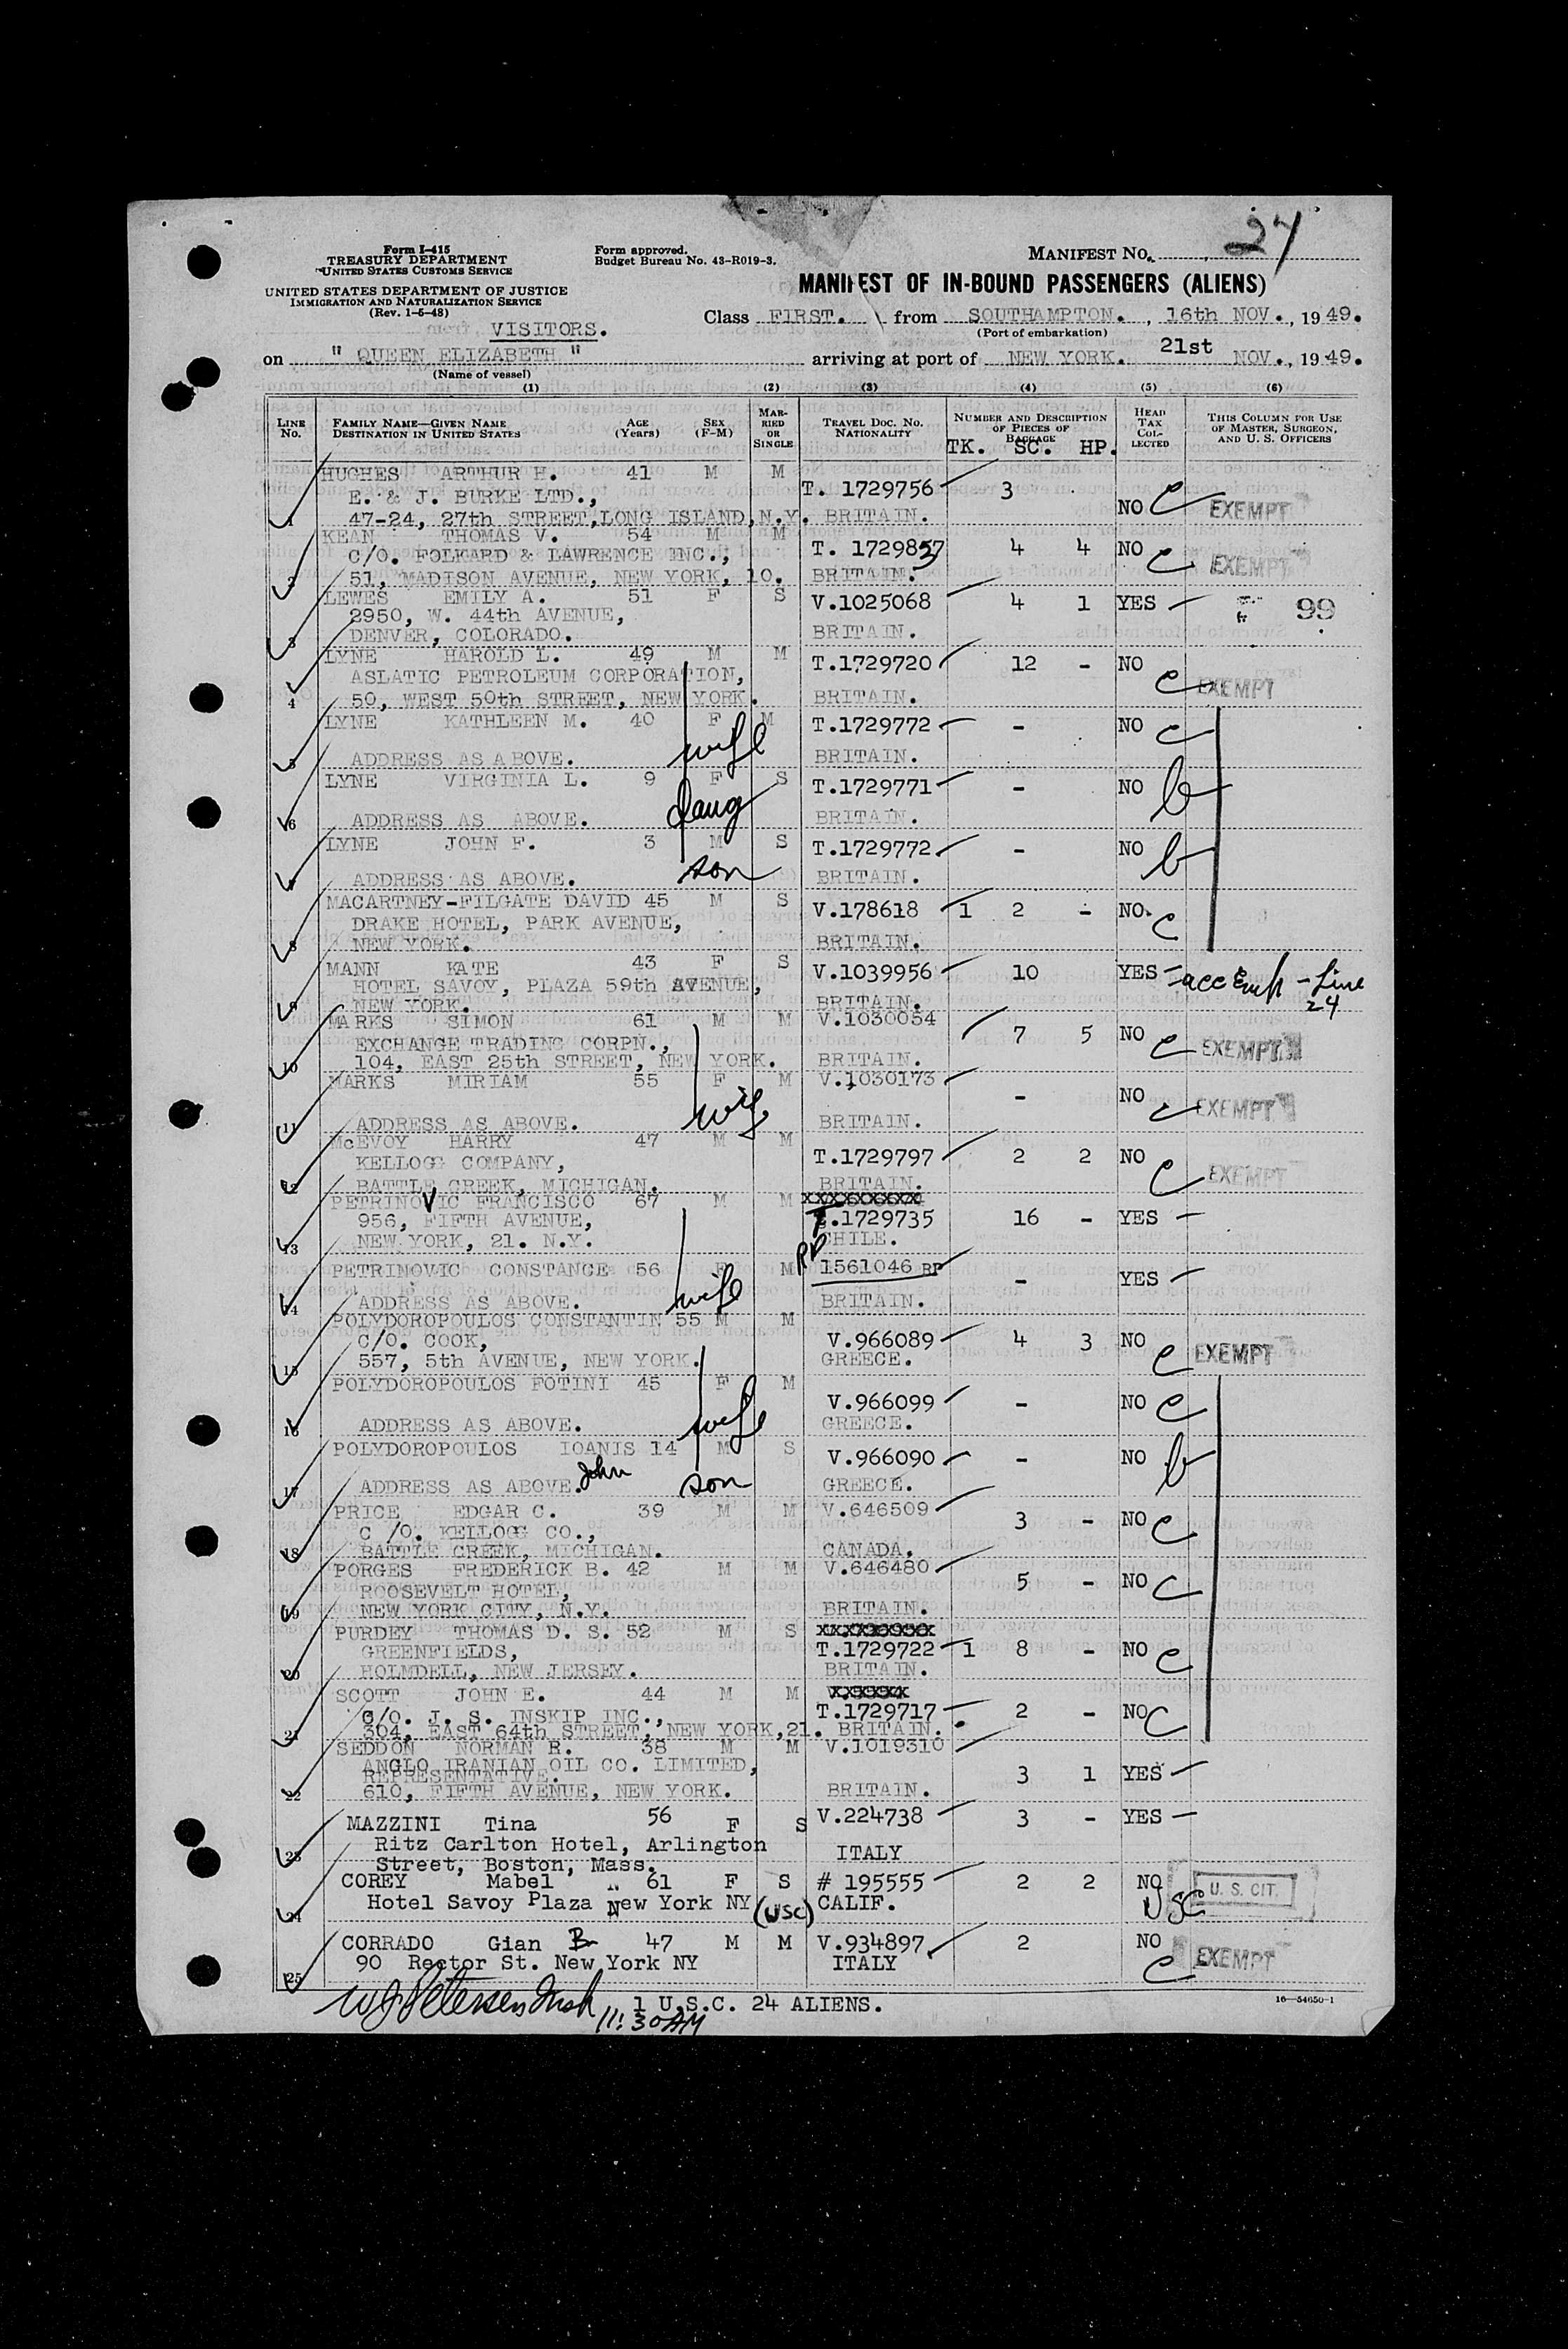 27
Form I-415
TREASURY DEPARTMENT
UNITED STATES CUSTOMS SERVICE
UNITED STATES DEPARTMENT OF JUSTICE
IMMIGRATION AND NATURALIZATION SERVICE
(Rev. 1-5-48)
Form approved.
Budget Bureau No. 43-R019-3.
MANIFEST No.
MANIFEST OF IN-BOUND PASSENGERS (ALIENS)
VISITORS.
Class FIRST. from SOUTHAMPTON., 16th NOV., 1949.
(Port of embarkation)
on " QUEEN ELIZABETH " arriving at port of NEW YORK. 21st NOV., 1949.
(Name of vessel)
(1) (2) (3) (4) (5) (6)
LINE No. FAMILY NAME—GIVEN NAME DESTINATION IN UNITED STATES AGE (Years) SEX (F-M) MARRIED OR SINGLE TRAVEL DOC. NO. NATIONALITY NUMBER AND DESCRIPTION OF PIECES OF BAGGAGE HEAD TAX COLLECTED THIS COLUMN FOR USE OF MASTER, SURGEON, AND U. S. OFFICERS
TK. SC. HP.
HUGHES ARTHUR H. 41 M M T. 1729756 3
E. & J. BURKE LTD., NO C EXEMPT
1 47-24, 27th STREET,LONG ISLAND,N.Y. BRITAIN.
KEAN THOMAS V. 54 M M T. 1729857 4 4 NO
C/O. FOLKARD & LAWRENCE INC., C EXEMPT
2 51, MADISON AVENUE, NEW YORK, 10. BRITAIN.
LEWES EMILY A. 51 F S V.1025068 4 1 YES 99
2950, W. 44th AVENUE,
3 DENVER, COLORADO. BRITAIN.
LYNE HAROLD L. 49 M M T.1729720 12 - NO
ASLATIC PETROLEUM CORPORATION, C EXEMPT
4 50, WEST 50th STREET, NEW YORK. BRITAIN.
LYNE KATHLEEN M. 40 F M T.1729772 - NO C
wife
5 ADDRESS AS ABOVE. BRITAIN.
LYNE VIRGINIA L. 9 F S T.1729771 - NO b
daug
6 ADDRESS AS ABOVE. BRITAIN.
LYNE JOHN F. 3 M S T.1729772 - NO b
son
7 ADDRESS AS ABOVE. BRITAIN.
MACARTNEY-FILGATE DAVID 45 M S V.178618 1 2 - NO. C
DRAKE HOTEL, PARK AVENUE,
8 NEW YORK. BRITAIN.
MANN KATE 43 F S V.1039956 10 YES acc Emp - Line 24
HOTEL SAVOY, PLAZA 59th AVENUE,
9 NEW YORK. BRITAIN.
MARKS SIMON 61 M M V.1030054 7 5 NO
EXCHANGE TRADING CORPN., C EXEMPT
10 104, EAST 25th STREET, NEW YORK. BRITAIN.
MARKS MIRIAM 55 F M V.1030173 - NO
wife C EXEMPT
11 ADDRESS AS ABOVE. BRITAIN.
McEVOY HARRY 47 M M T.1729797 2 2 NO
KELLOGG COMPANY, C EXEMPT
12 BATTLE CREEK, MICHIGAN. BRITAIN.
PETRINOVIC FRANCISCO 67 M M XXXXXXXXXX
956, FIFTH AVENUE, T.1729735 16 - YES
13 NEW YORK, 21. N.Y. CHILE.
PETRINOVIC CONSTANCE 56 F M RP 1561046 RP - YES
wife
14 ADDRESS AS ABOVE. BRITAIN.
POLYDOROPOULOS CONSTANTIN 55 M M
C/O. COOK, V.966089 4 3 NO
15 557, 5th AVENUE, NEW YORK. GREECE. C EXEMPT
POLYDOROPOULOS FOTINI 45 F M V.966099 - NO C
wife
16 ADDRESS AS ABOVE. GREECE.
POLYDOROPOULOS IOANIS 14 M S V.966090 - NO b
17 ADDRESS AS ABOVE. John son GREECE.
PRICE EDGAR C. 39 M M V.646509 3 - NO C
C /O. KELLOGG CO.,
18 BATTLE CREEK, MICHIGAN. CANADA.
PORGES FREDERICK B. 42 M M V.646480 5 - NO C
ROOSEVELT HOTEL,
19 NEW YORK CITY, N.Y. BRITAIN.
PURDEY THOMAS D. S. 52 M S XXXXXXXXXX
GREENFIELDS, T.1729722 1 8 - NO C
20 HOLMDELL, NEW JERSEY. BRITAIN.
SCOTT JOHN E. 44 M M
C/O. J. S. INSKIP INC., T.1729717 2 - NO C
21 304, EAST 64th STREET, NEW YORK,21. BRITAIN.
SEDDON NORMAN R. 38 M M V.1019310
ANGLO IRANIAN OIL CO. LIMITED,
REPRESENTATIVE. 3 1 YES
22 610, FIFTH AVENUE, NEW YORK. BRITAIN.
MAZZINI Tina 56 F S V.224738 3 - YES
23 Ritz Carlton Hotel, Arlington ITALY
Street, Boston, Mass.
COREY Mabel 61 F S # 195555 2 2 NO U. S. CIT.
24 Hotel Savoy Plaza New York NY (USC) CALIF. USC
CORRADO Gian B 47 M M V.934897 2 NO
25 90 Rector St. New York NY ITALY C EXEMPT
1 U.S.C. 24 ALIENS.
11:30AM
16—54650-1